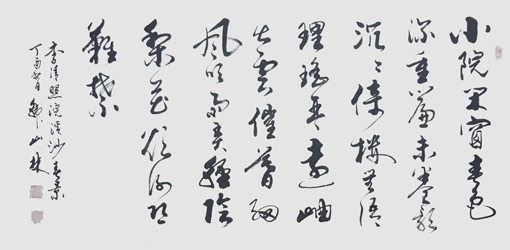 小院闲窗春色
深重簾未卷影
沉沉倚樓無語
理瑶琴遠岫
出雲催暮細
風吹雨弄輕陰
梨花欲謝恐
難禁
李清照浣溪沙春景
丁酉 月 山林